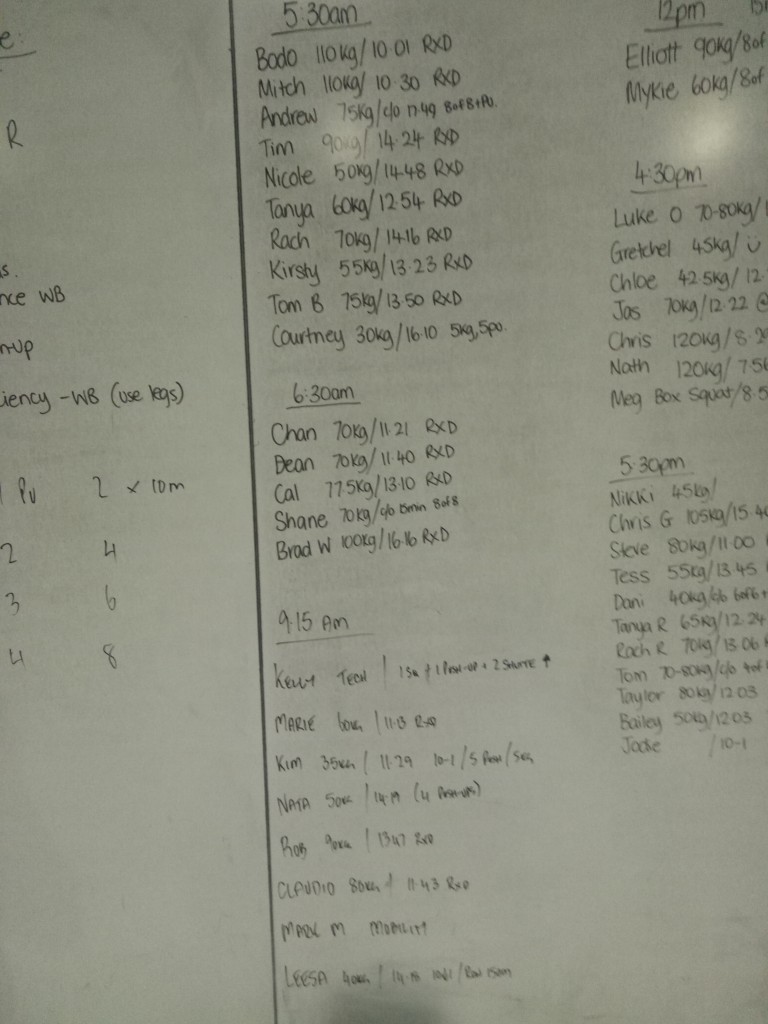 e:
R
s.
nce WB
n-up
iency - WB (use legs)
1 PU 2 x 10m
2 4
3 6
4 8
5:30am
Bodo 110kg/10.01 RXD
Mitch 110kg/10.30 RXD
Andrew 75kg/c/o 17.49 8of8+PU.
Tim 90kg/14.24 RXD
Nicole 50kg/14.48 RXD
Tanya 60kg/12.54 RXD
Rach 70kg/14.16 RXD
Kirsty 55kg/13.23 RXD
Tom B 75kg/13.50 RXD
Courtney 30kg/16.10 5kg, 5pu.
6:30am
Chan 70kg/11.21 RXD
Dean 70kg/11.40 RXD
Cal 77.5kg/13.10 RXD
Shane 70kg/c/o 15min 8of8
Brad W 100kg/16.16 RXD
9.15 Am
Kelly Tech / 1 + 1 Push-up + 2 Shuttle ↑
MARIE 60kg / 11.13 RXD
Kim 35kg / 11.29 10-1 / 5 Push / 5kg
NATA 50kg / 14.19 (4 Push-ups)
ROB 90kg / 13.47 RXD
CLAUDIO 80kg / 11.43 RXD
MARK M MOBILITY
LEESA 40kg / 14.18 / Row 150m
12pm
Elliott 90kg/8of
Mykie 60kg/8of
4:30pm
Luke O 70-80kg/
Gretchel 45kg/
Chloe 42.5kg/12.
Jas 70kg/12.22 @
Chris 120kg/8.2
Nath 120kg/7.56
Meg Box Squat/8.5
5.30pm
Nikki 45kg/
Chris G 105kg/15.40
Steve 80kg/11.00
Tess 55kg/13.45
Dani 40kg/c/o 6of6+
Tanya R 65kg/12.24
Rach R 70kg/13.06
Tom 70-80kg/c/o 4of
Taylor 80kg/12.03
Bailey 50kg/12.03
Jodie /10-1